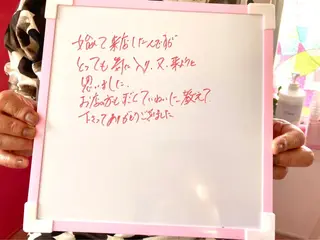 始めて来店したんですが
とっても気に入り、又、来ようと
思いました。
お店の方も すごくていねいに教えて
下さってありがとうございました